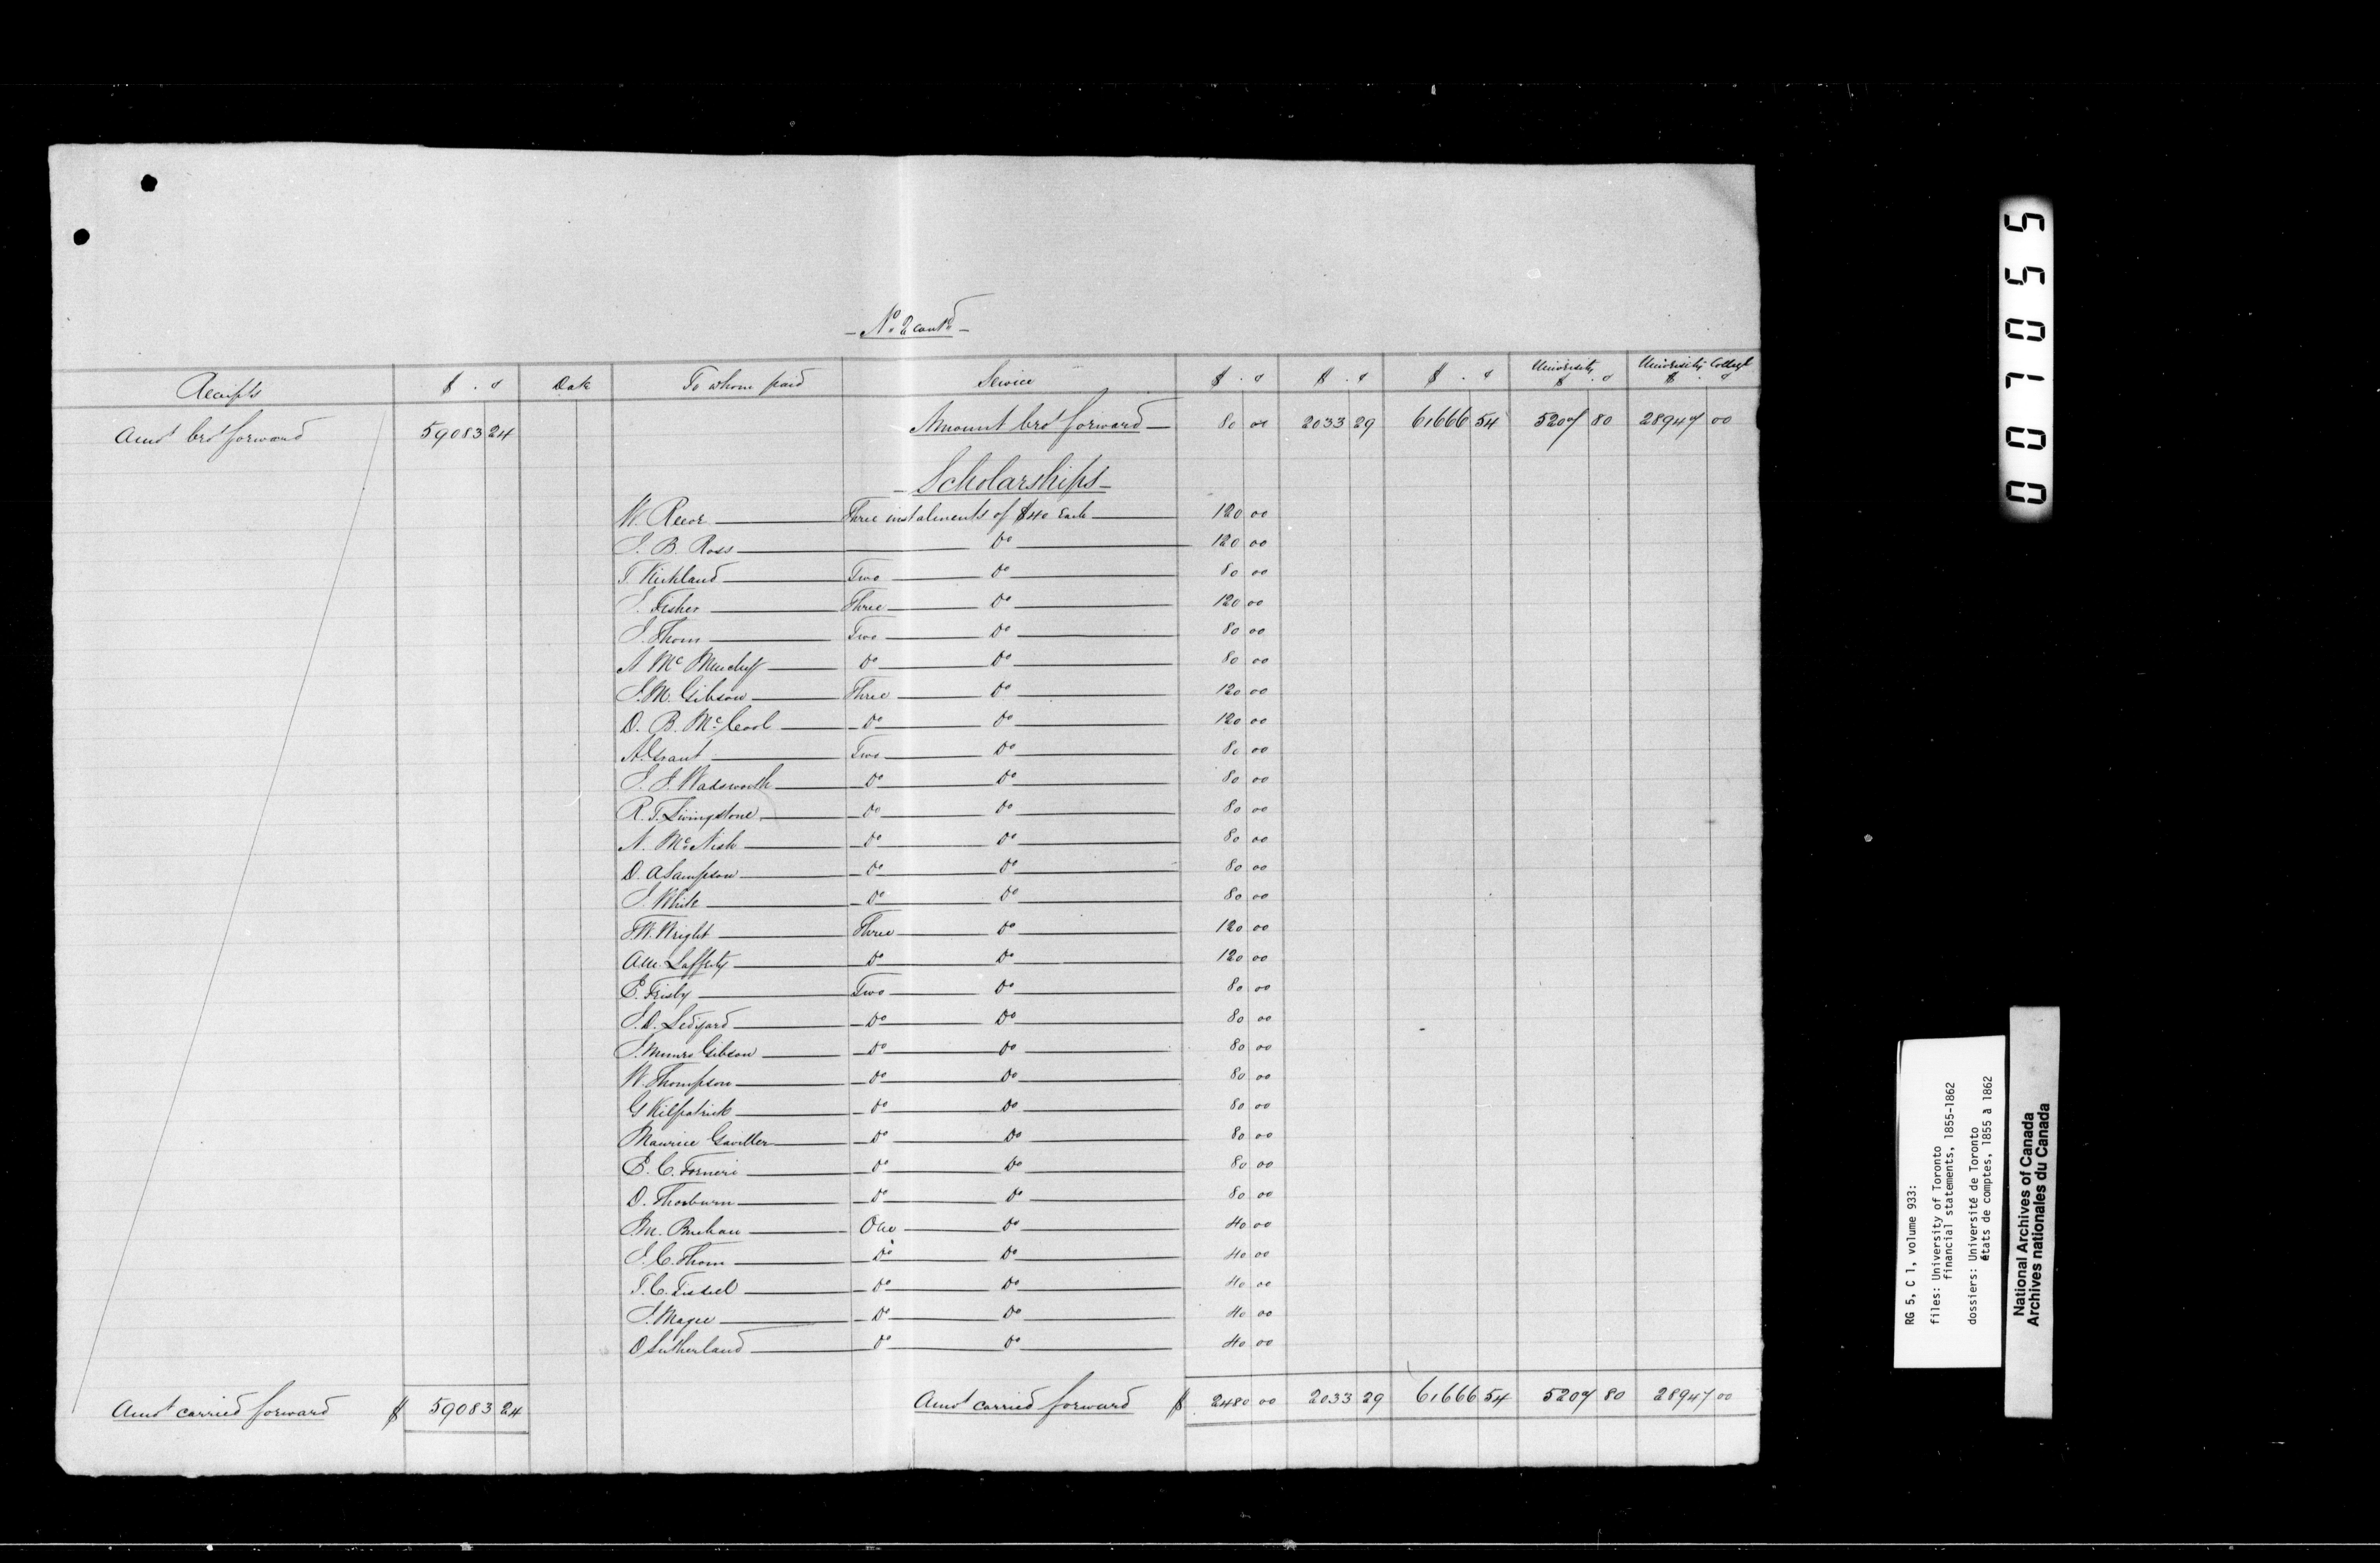 - No 2 contd -
Receipts $ . c Date To whom paid Service $ . c $ . c $ . c University $ . c University College $ . c
Amot brot forward 59083 24 Amount brot forward 80 00 2033 29 61666 54 5207 80 28947 00
- Scholarships -
W. Reeve Three instalments of $40 Each 120 00
J. B. Ross Do 120 00
T. Kirkland Two Do 80 00
J. Fisher Three Do 120 00
J. Thom Two Do 80 00
A. McMurchy Do Do 80 00
J. M. Gibson Three Do 120 00
D. B. McCool Do Do 120 00
A. Grant Two Do 80 00
J. J. Wadsworth Do Do 80 00
R. T. Livingstone Do Do 80 00
N. McNish Do Do 80 00
D. A Sampson Do Do 80 00
J. White Do Do 80 00
F. W. Wright Three Do 120 00
A. M. Lafferty Do Do 120 00
E. Frisby Two Do 80 00
T. D. Ledyard Do Do 80 00
J. Munro Gibson Do Do 80 00
W. Thompson Do Do 80 00
G Kilpatrick Do Do 80 00
Maurice Gaviller Do Do 80 00
E. C. Forneri Do Do 80 00
D. Thorburn Do Do 80 00
J. M. Buchan One Do 40 00
J. C. Thom Do Do 40 00
T. C. Do Do 40 00
J. Magee Do Do 40 00
D Sutherland Do Do 40 00
Amot carried forward $ 59083 24 Amot carried forward $ 2480 00 2033 29 61666 54 5207 80 28947 00
007055
RG 5, C 1, volume 933:
files: University of Toronto
financial statements, 1855-1862
dossiers: Université de Toronto
états de comptes, 1855 à 1862
National Archives of Canada
Archives nationales du Canada